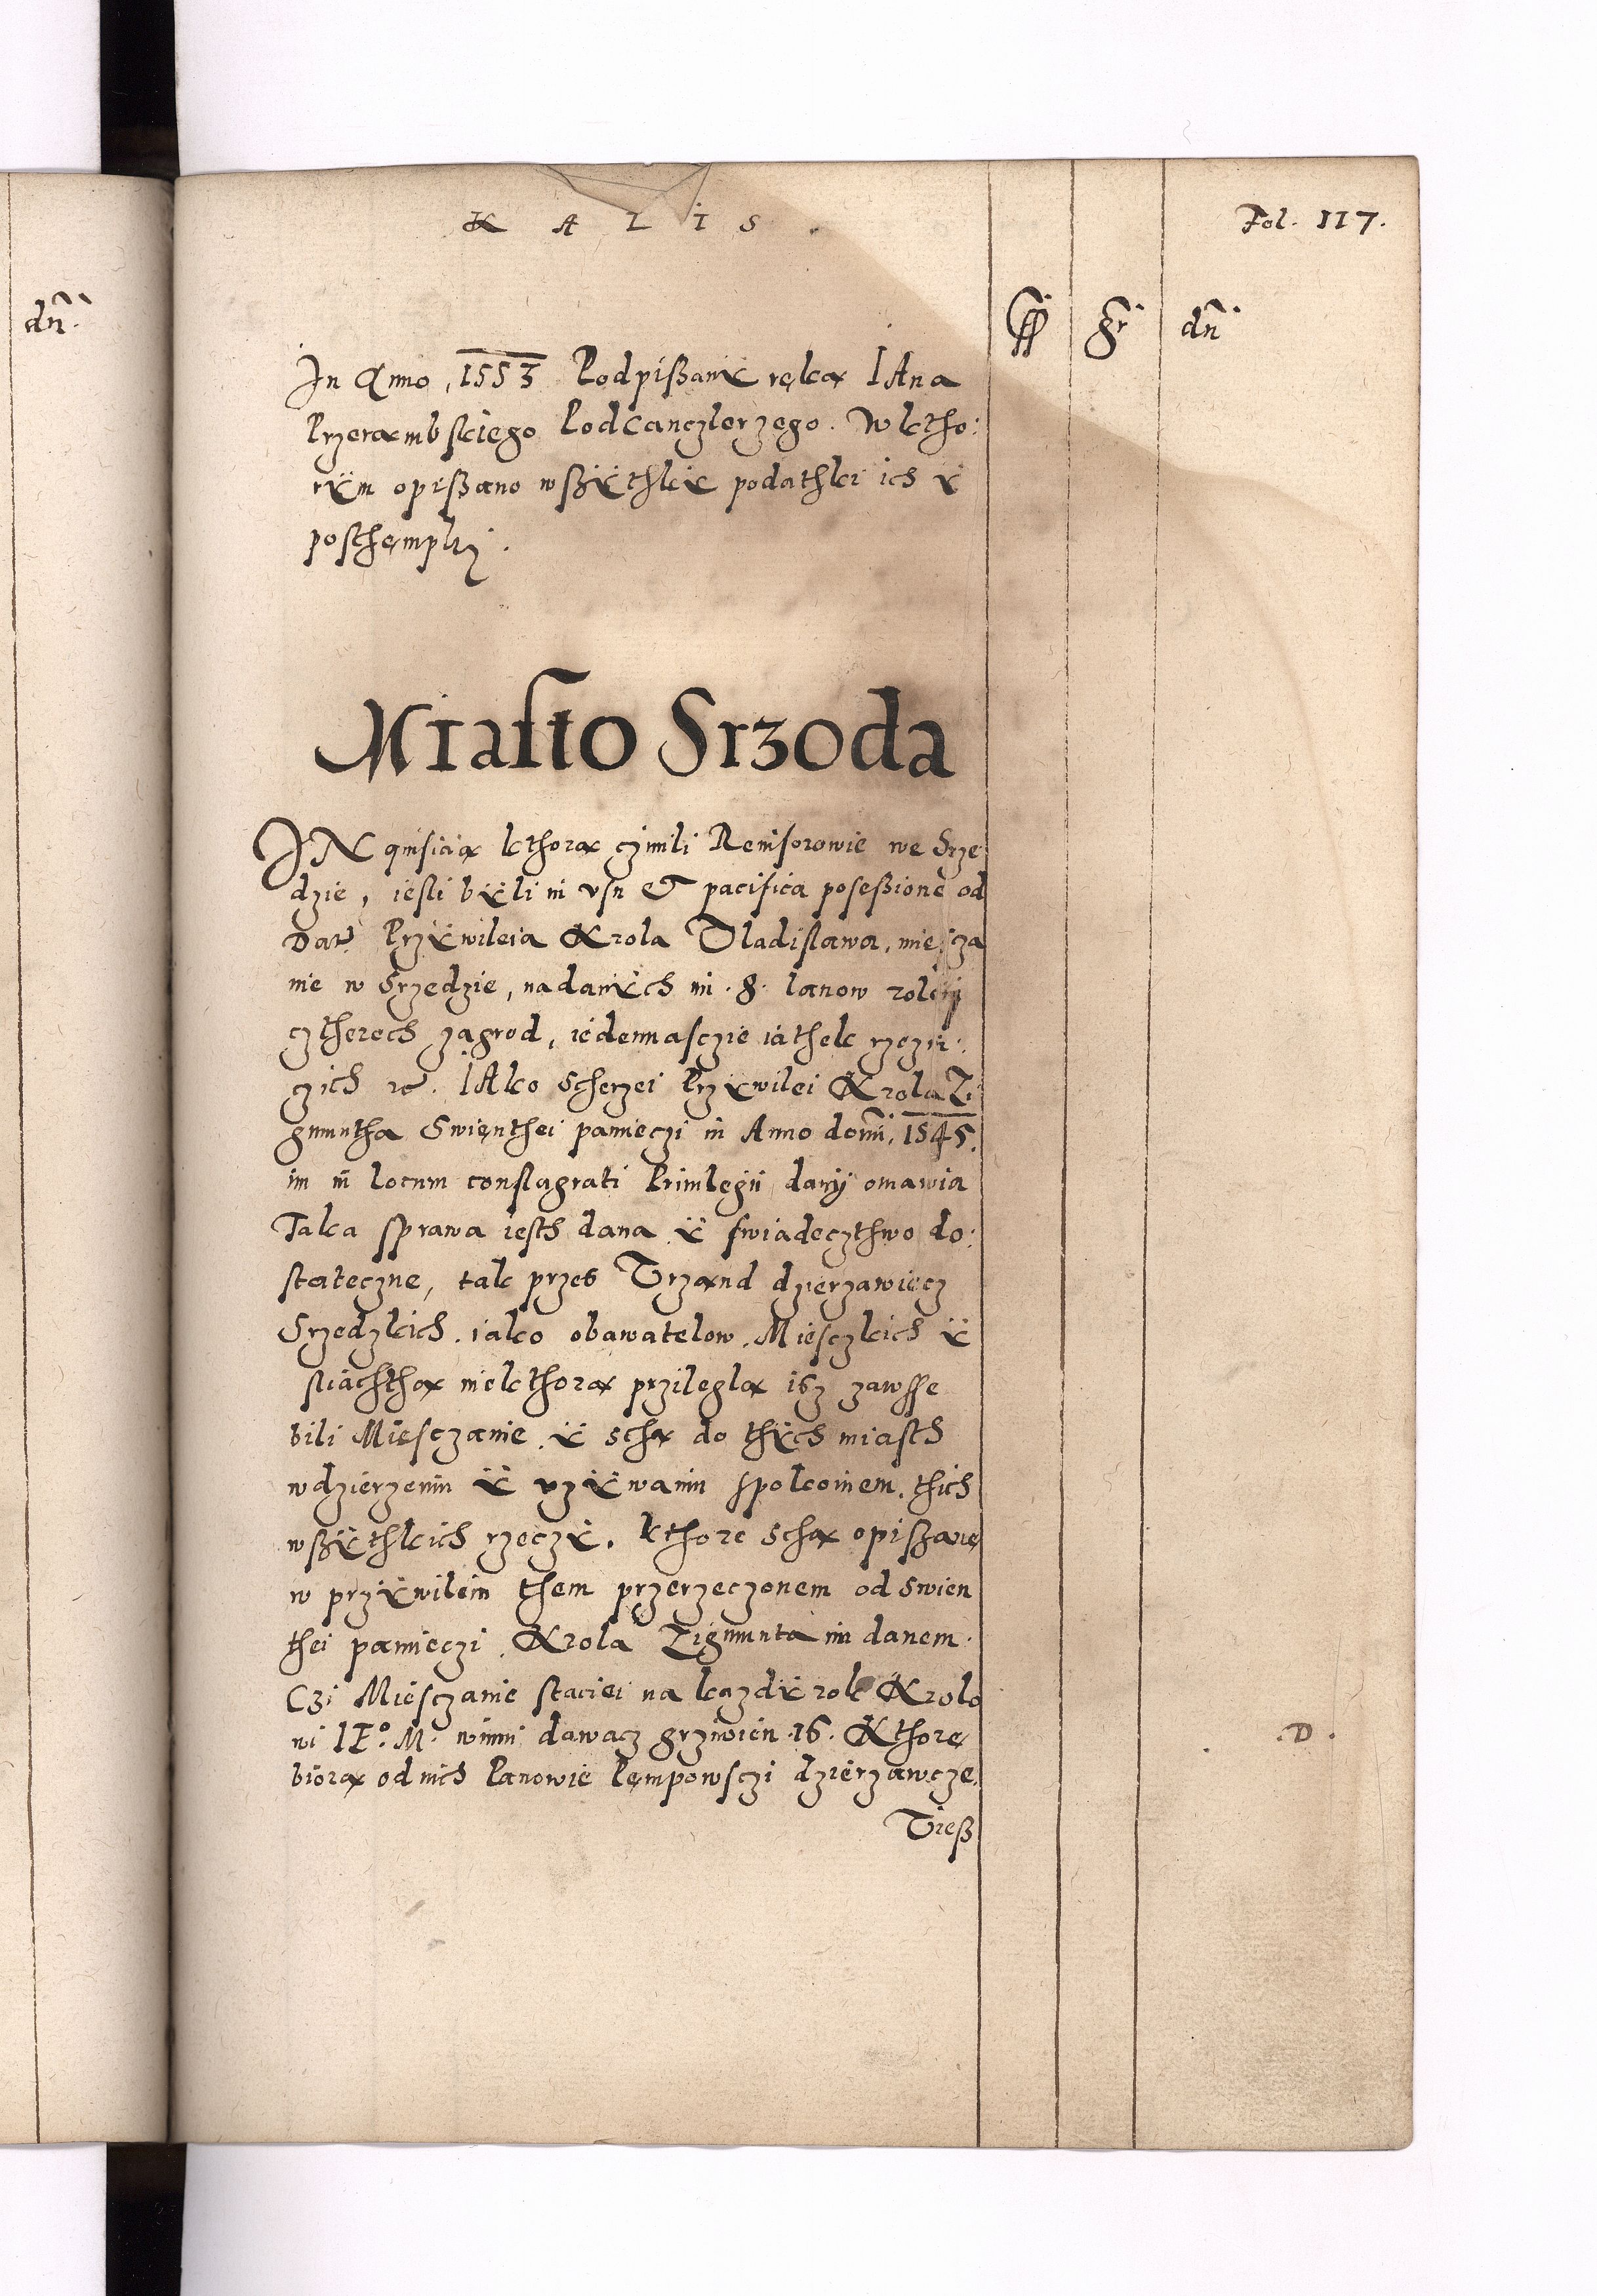 K A L I S
Fol. 117.
dn̄.
ss gr dn̄
In Anno 1553 Podpißaniÿ ręką IAna
Przerąmbskiego Podcanczlerzego. W ktho:
rÿm opißano wßÿthkiÿ podathki ich ÿ
posthęmpki.
Miasto Srzoda
IN quisicią kthorą czinili Reuisorowie we Srze
dzie, iesli bÿli in usu et pacifica poseßione od
Dat. Przÿwileia Krola Vladislawa, miescza
nie w Srzedzie, nadanÿch im .8. lanow rolei
cztherech zagrod, iedennasczie iathek rzezni:
czich etc. IAko scherzei Przÿwilei Krola Zi
gmuntha Swienthei pamieczi in Anno domi. 1545.
im in locum conflagrati Priuilegii danÿ omawia
Taka sprawa iesth dana ÿ swiadecthwo do:
stateczne, tak przes Vrzand dzierzawiecz
Srzedzkich. iako obawatelow. Miesczkich ÿ
sliachthą niekthorą przileglą isz zawsse
bili Miesczanie. ÿ schą do thÿch miasth
w dzierzeniu ÿ uzÿwaniu spolkoinem. thich
wßÿthkich rzeczÿ. kthore schą opißane
w przÿwileiu them przerzeczonem od swien
thei pamieczi. Krola Zigmunta im danem.
Czi Miesczanie staciei na kazdÿ rok Krolo
wi IE.° M. winni dawacz grziwien .16. Kthore
biorą od nich Panowie Pempowsczi dzierzawcze.
.D.
Vieß